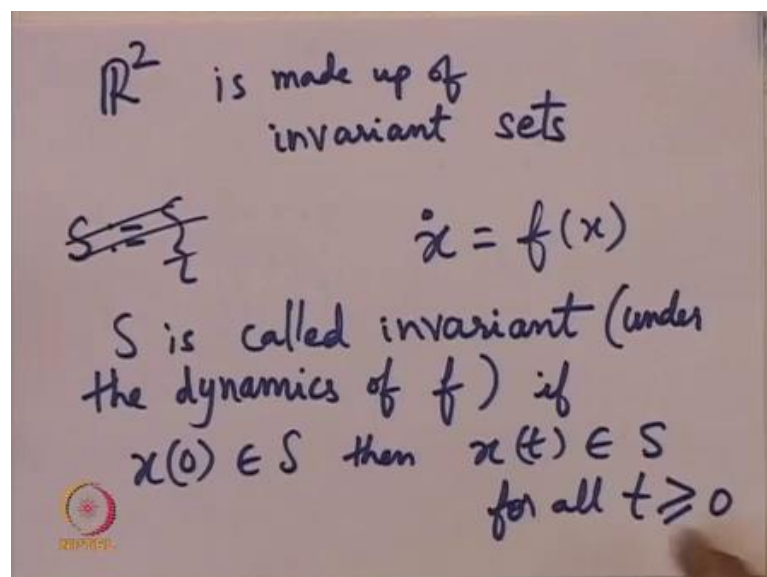 ℝ² is made up of
invariant sets
S := {
ẋ = f(x)
S is called invariant (under
the dynamics of f) if
x(0) ∈ S then x(t) ∈ S
for all t ≥ 0
NPTEL